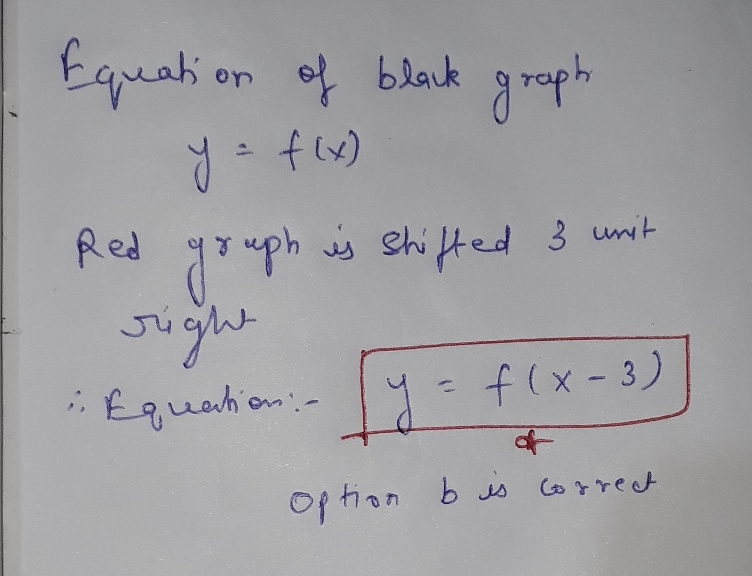 Equation of black graph
y = f(x)
Red graph is shifted 3 unit
right
∴ Equation:-
y = f(x-3)
Option b is correct